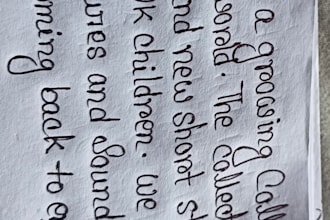 a growing Call
world. The Called
nd new short s
k children. We
unes and Sound
ming back to a